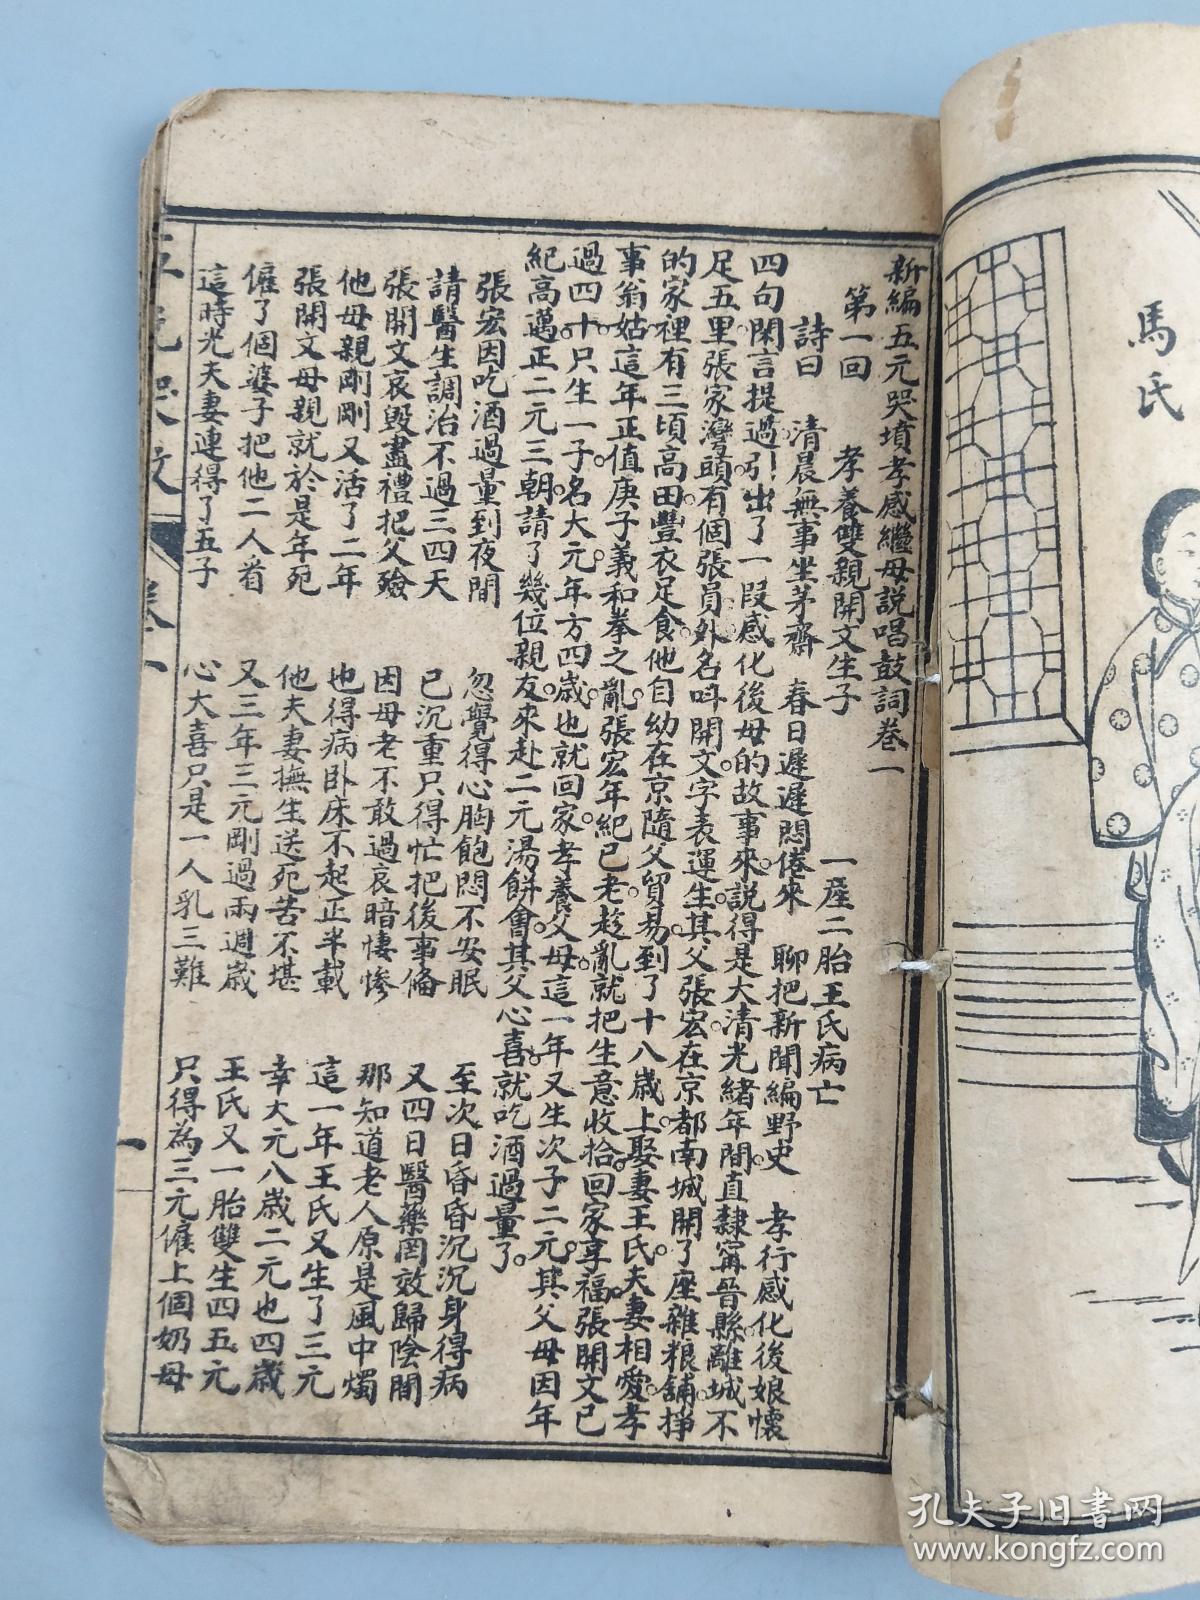 馬氏
新編五元哭墳孝感繼母説唱鼓詞卷一
第一回 孝養雙親開文生子 一產二胎王氏病亡
詩曰 清晨無事坐茅齋 春日遲遲悶倦來 聊把新聞編野史 孝行感化後娘懷
四句閑言提過引出了一段感化後母的故事來說得是大清光緒年間直隸甯晉縣離城不
足五里張家灣頭有個張員外名呌開文字表運生其父張宏在京都南城開了座雜粮舖掙
的家裡有三頃高田豐衣足食他自幼在京隨父貿易到了十八歲上娶妻王氏夫妻相愛孝
事翁姑這年正值庚子義和拳之亂張宏年紀已老趁亂就把生意收拾回家享福張開文已
過四十只生一子名大元年方四歲也就回家孝養父母這一年又生次子二元其父母因年
紀高邁正二元三朝請了幾位親友來赴二元湯餅會其父心喜就吃酒過量了
張宏因吃酒過量到夜間 忽覺得心胸飽悶不安眠 至次日昏昏沉沉身得病
請醫生調治不過三四天 已沉重只得忙把後事俻 又四日醫藥罔效歸陰間
張開文哀毀盡禮把父殮 因母老不敢過哀暗悽慘 那知道老人原是風中燭
他母親剛剛又活了二年 也得病卧床不起正半載 這一年王氏又生了三元
張開文母親就於是年死 他夫妻撫生送死苦不堪 幸大元八歲二元也四歲
僱了個婆子把他二人看 又三年三元剛過兩週歲 王氏又一胎雙生四五元
這時光夫妻連得了五子 心大喜只是一人乳三難 只得為三元僱上個奶母
五元哭墳 卷一 一
孔夫子旧书网
www.kongfz.com